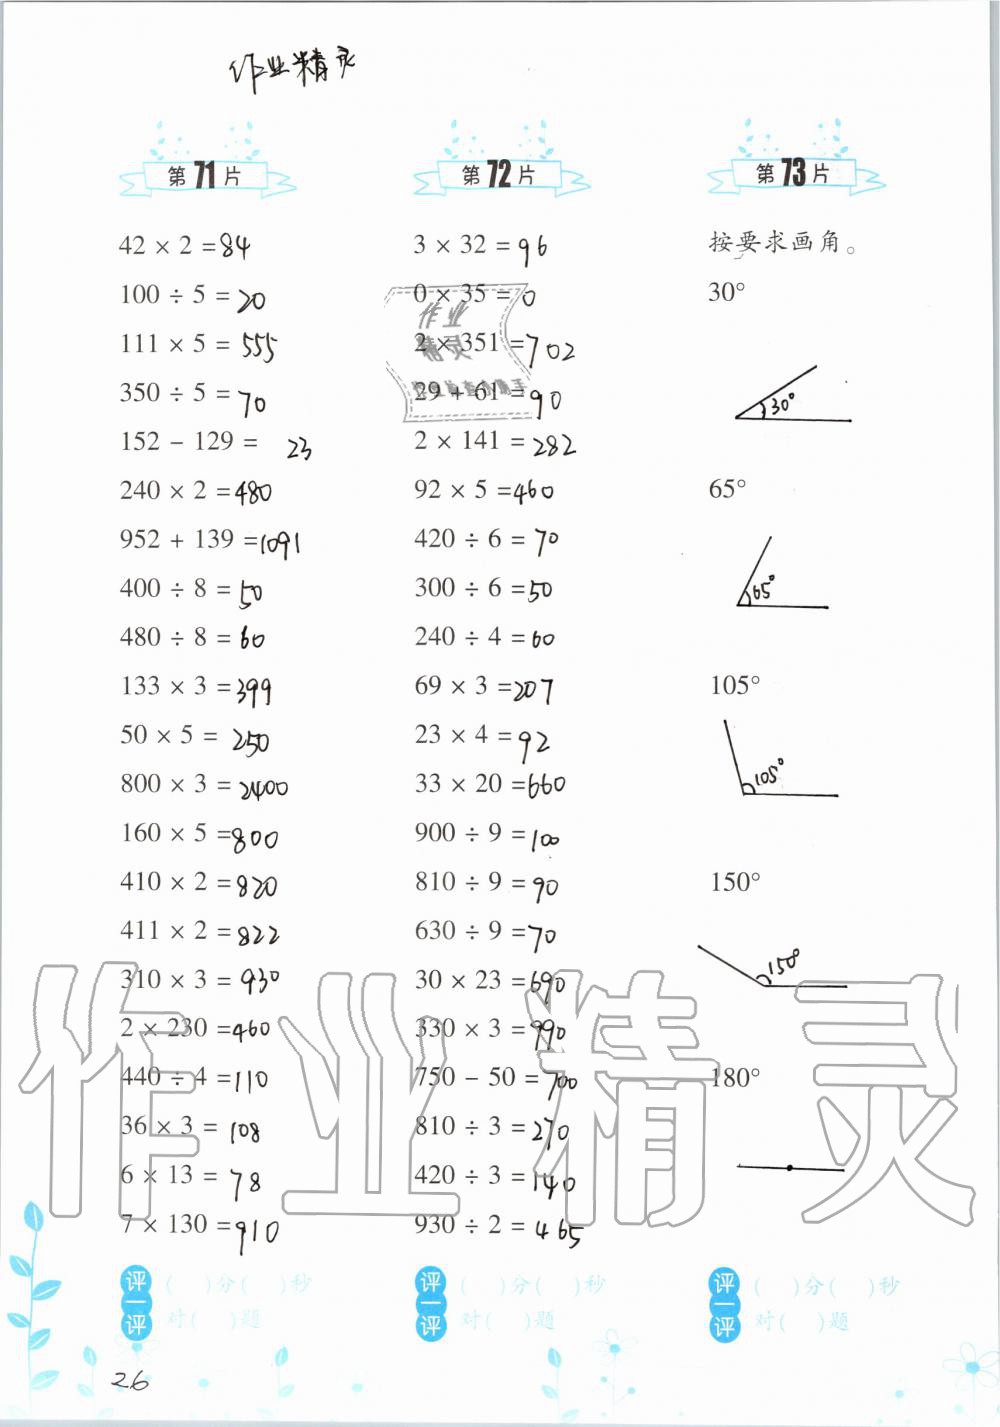 作业精灵
第71片
42 × 2 = 84
100 ÷ 5 = 20
111 × 5 = 555
350 ÷ 5 = 70
152 − 129 = 23
240 × 2 = 480
952 + 139 = 1091
400 ÷ 8 = 50
480 ÷ 8 = 60
133 × 3 = 399
50 × 5 = 250
800 × 3 = 2400
160 × 5 = 800
410 × 2 = 820
411 × 2 = 822
310 × 3 = 930
2 × 230 = 460
440 ÷ 4 = 110
36 × 3 = 108
6 × 13 = 78
7 × 130 = 910
评一评
( )分( )秒
对( )题
第72片
3 × 32 = 96
0 × 35 = 0
2 × 351 = 702
29 + 61 = 90
2 × 141 = 282
92 × 5 = 460
420 ÷ 6 = 70
300 ÷ 6 = 50
240 ÷ 4 = 60
69 × 3 = 207
23 × 4 = 92
33 × 20 = 660
900 ÷ 9 = 100
810 ÷ 9 = 90
630 ÷ 9 = 70
30 × 23 = 690
330 × 3 = 990
750 − 50 = 700
810 ÷ 3 = 270
420 ÷ 3 = 140
930 ÷ 2 = 465
评一评
( )分( )秒
对( )题
第73片
按要求画角。
30°
30°
65°
65°
105°
105°
150°
150°
180°
评一评
( )分( )秒
对( )题
作业
精灵
作业精灵
26